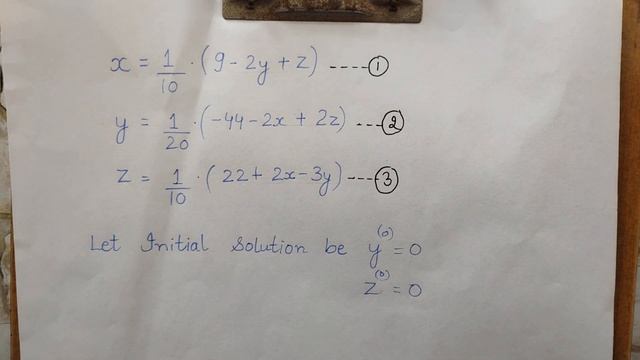 x = 1/10 · (9 - 2y + z) ----①
y = 1/20 · (-44 - 2x + 2z) ---②
z = 1/10 · (22 + 2x - 3y) ----③
Let Initial Solution be y⁽⁰⁾ = 0
z⁽⁰⁾ = 0